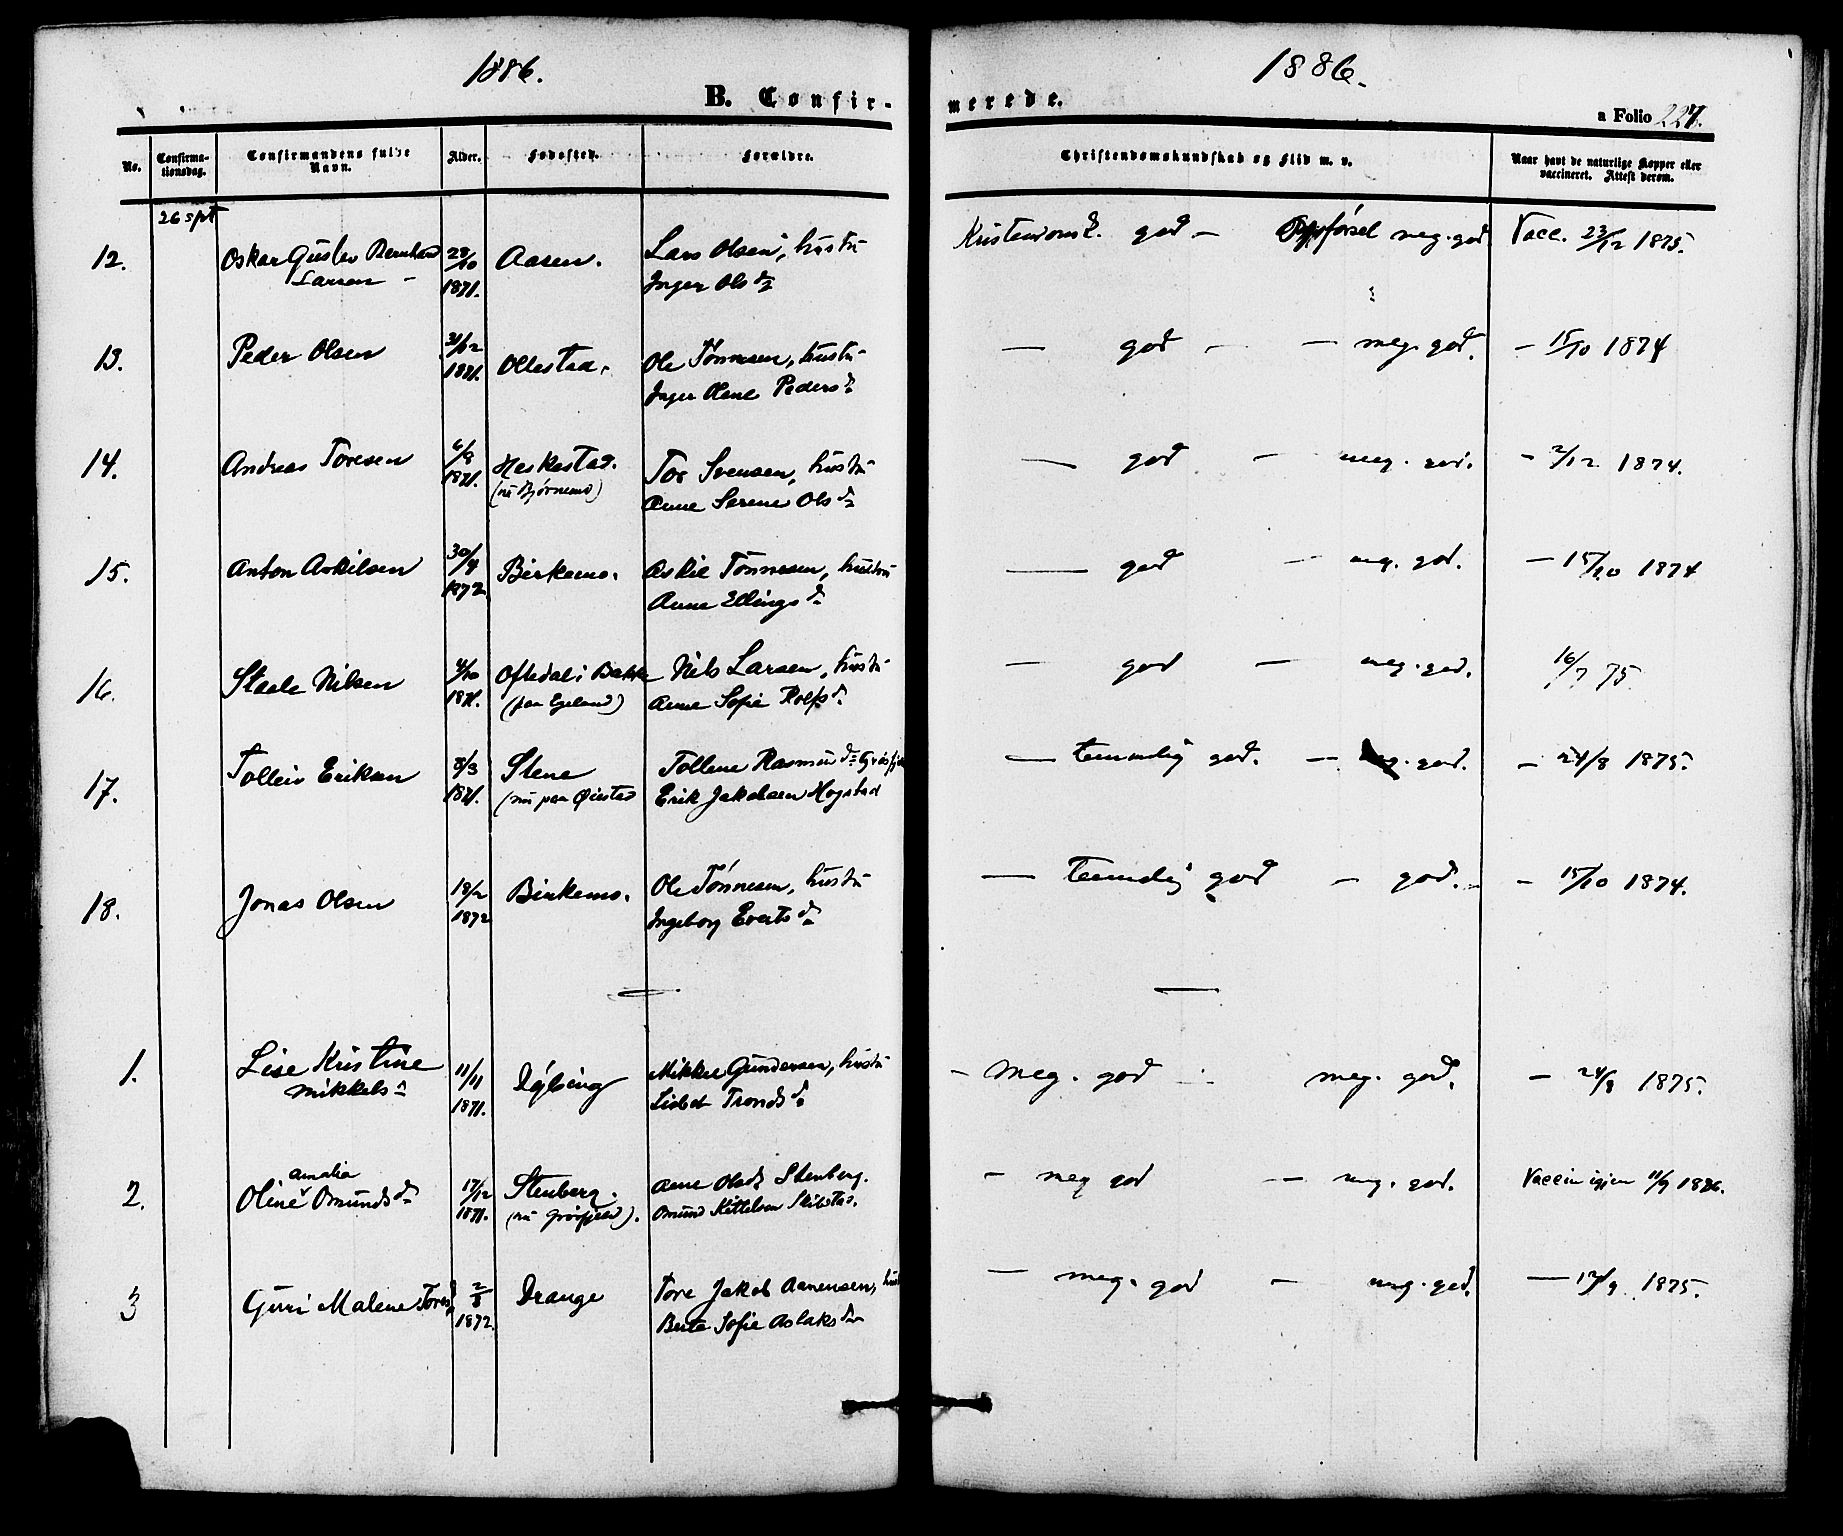 1886.
1886.
B. Confir-
merede.
a Folio 227.
No.
Confirma-
tionsdag.
Confirmandens fulde
Navn.
Alder.
Fødested.
Forældre.
Christendomskundskab og Flid m. v.
Naar havt de naturlige Kopper eller
vaccineret. Attest derom.
26 spt
12. Oskar Gustav Bernhard 28/10 Aasen. Lars Olsen, hustru Kristendomsk. god - Opførsel meg. god Vacc. 23/12 1875.
Larsen - 1871. Inger Olsd.
13. Peder Olsen 31/12 Ollestad. Ole Tønnesen, hustru — god - — meg. god. - 15/10 1874
1871. Inger Olene Pedersd.
14. Andreas Toresen 6/9 Heskestad. Tor Svensen, hustru — god - meg. god. - 2/12 1874.
1871. (nu Bjørnemo) Anne Serene Olsd.
15. Anton Askilsen 30/4 Birkemo. Askil Tønnesen, hustru — god - meg. god. - 15/10 1874
1872 Anne Ellingsd.
16. Staale Nilsen 4/10 Oftedal i Bakke Nils Larsen, hustru — god - meg. god. 16/7 75.
1871. (paa Egeland) Anne Sofie Rolfsd.
17. Tolleiv Eriksen 8/3 Stene Tollene Rasmusd. — temmelig god. - meg. god. - 24/8 1875.
1871. (nu paa Øiestad Erik Jakobsen Hogstad
18. Jonas Olsen 18/2 Birkemo. Ole Tønnesen, hustru — temmelig god - god. - 15/10 1874.
1872 Ingeborg Evertsd.
1. Lise Kristine 11/11 Mikkel Gundersen, hustru - meg. god meg. god. - 24/8 1875.
Mikkels 1871. Lisbet Trondsd.
amalia
2. Oline Omundsd. 17/12 Stenberg. Anne Olsd. Stenberg. - meg god - meg. god. Vaccin igjen 11/9 1886.
1871. (nu Grøsfjeld). Omund Kittelsen Skibstad.
3 Guri Malene Toresd. 2/8 Drange Tore Jakob Aanensen, hust - meg. god - meg. god. - 17/9 1875.
1872. Berte Sofie Aslaksd.